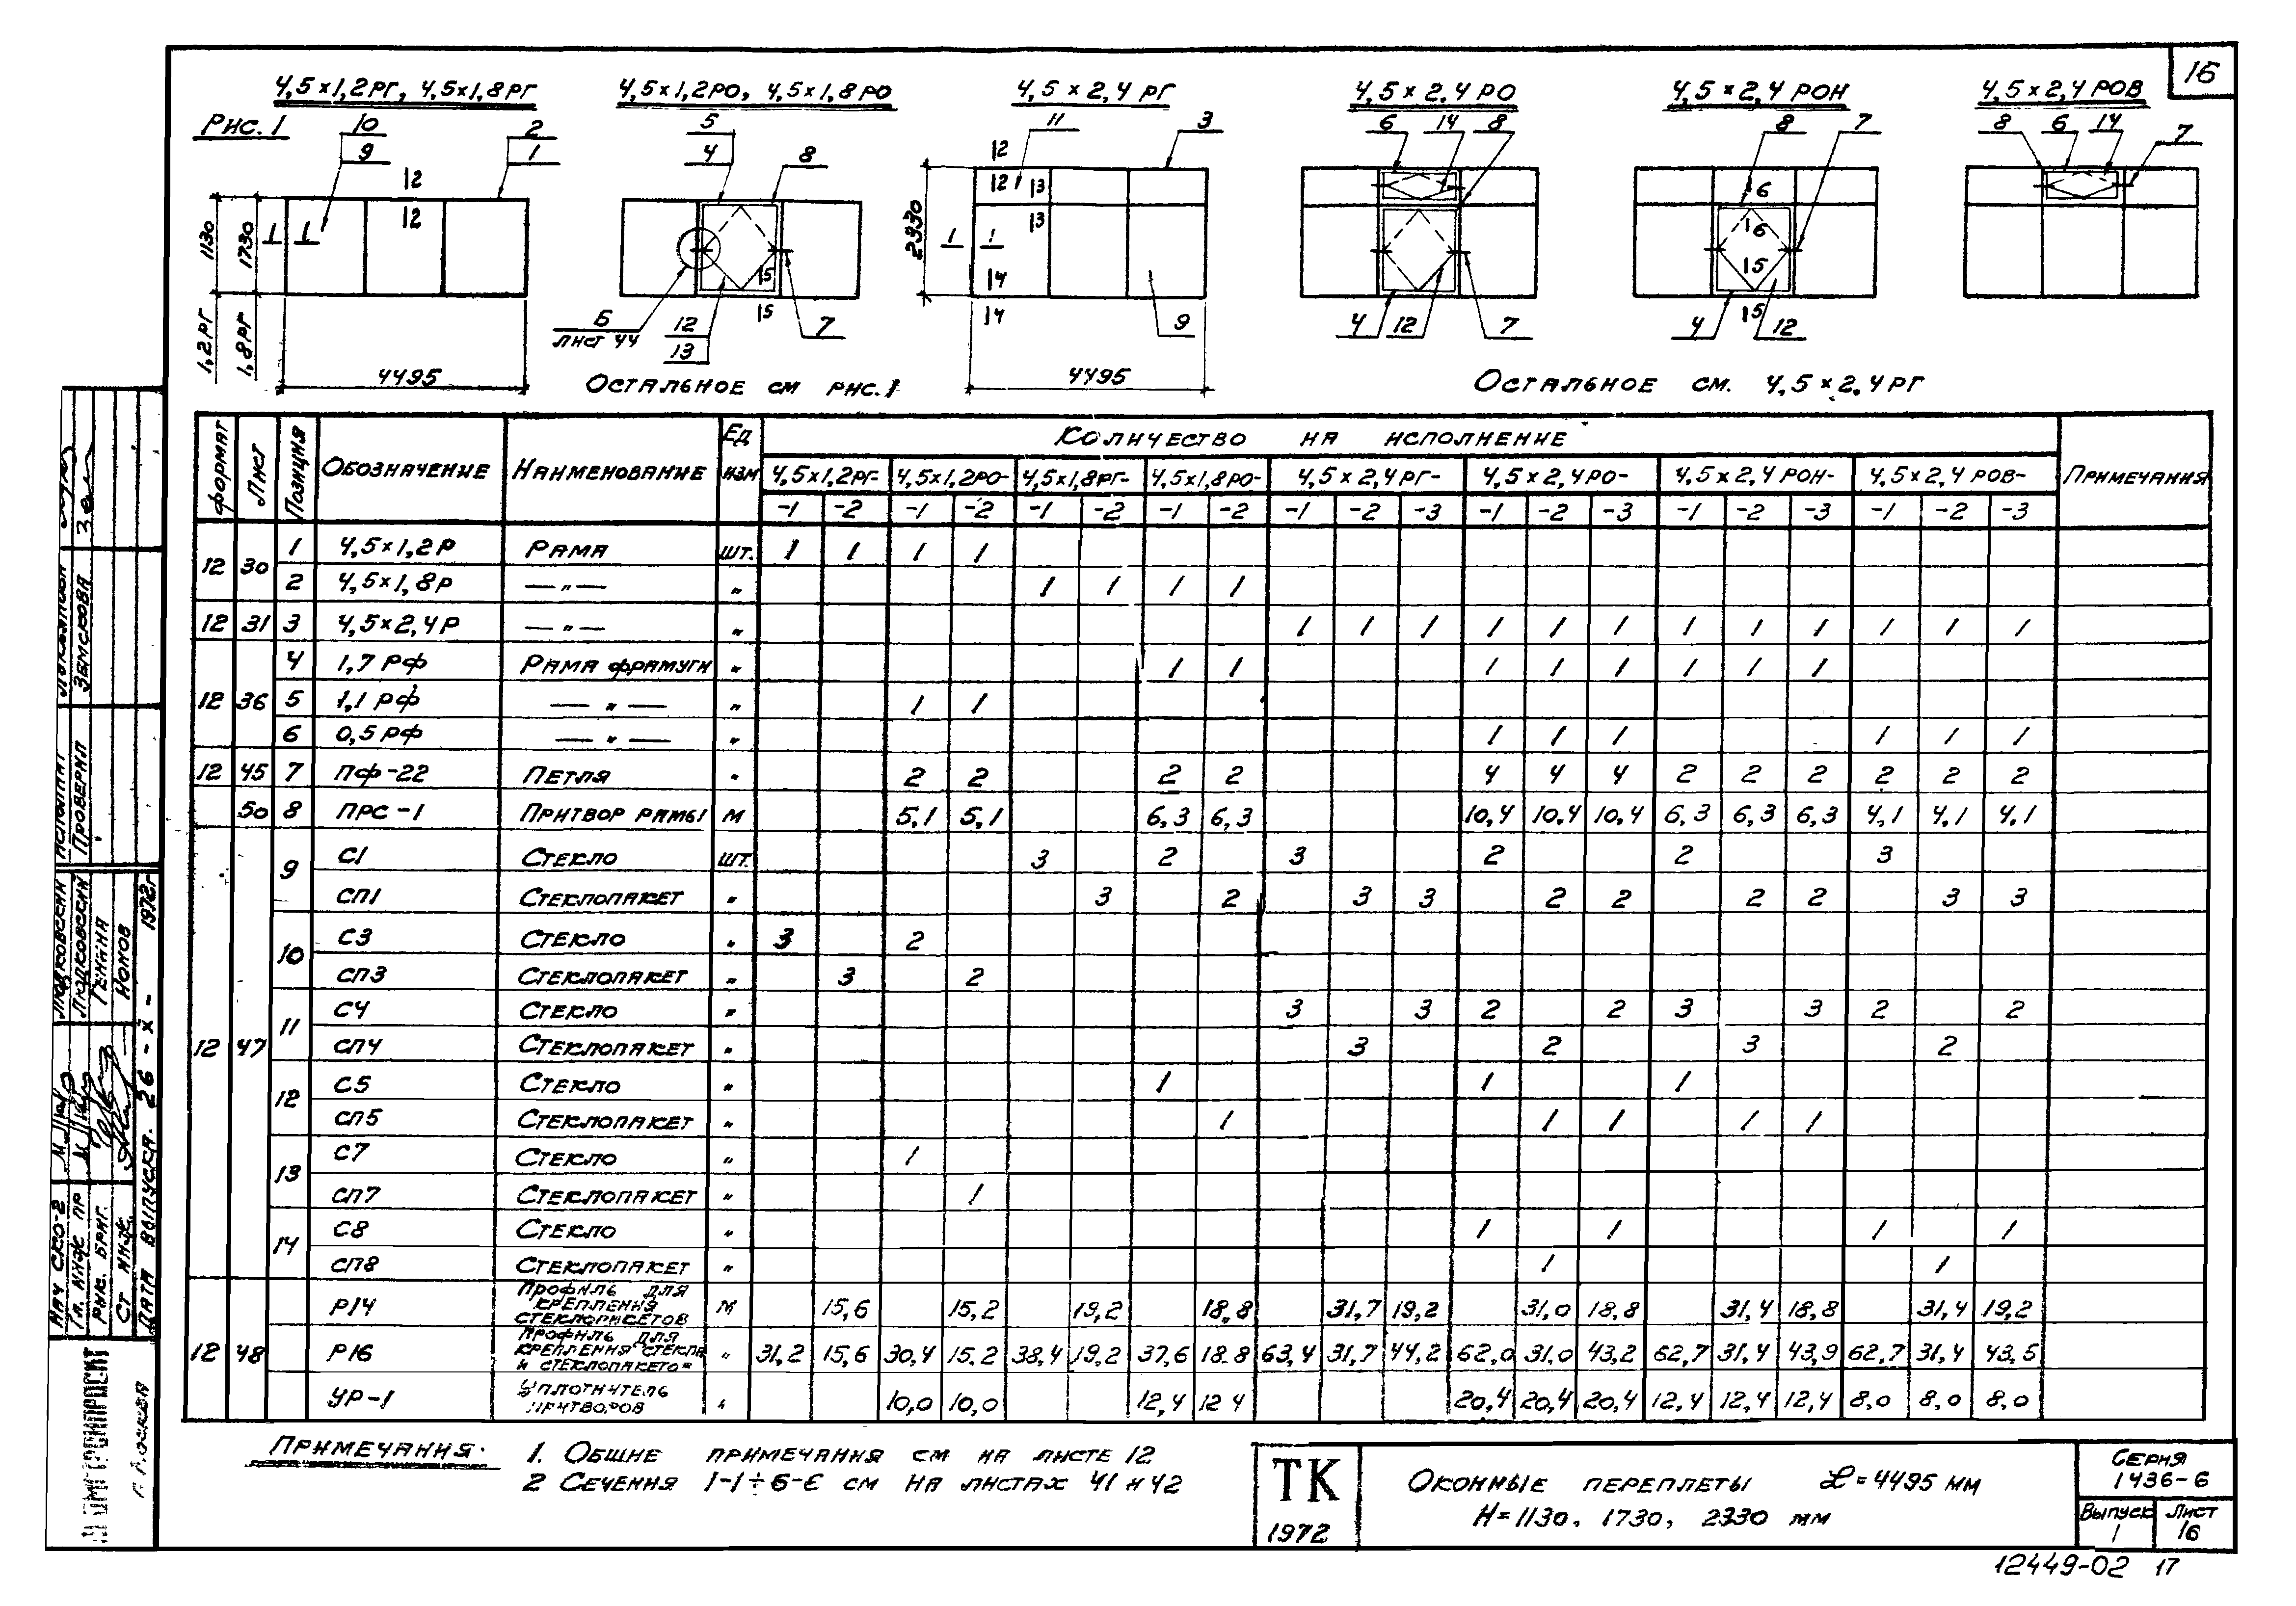 16
4,5×1,2РГ, 4,5×1,8РГ
4,5×1,2РО, 4,5×1,8РО
4,5×2,4 РГ
4,5×2,4 РО
4,5×2,4 РОН
4,5×2,4 РОВ
Рис. 1
10 9 2 1
12 12
1 1
1130 1730
1,2РГ 1,8РГ
4495
5 4 8
15 15
Б
лист 44
12 13 7
Остальное см рис. 1
11 3
12 12 13 13
1 1
14 14
9
2330
4495
6 14 8
4 12 7
8 7
16 16
15 15
4 12
8 6 14 7
Остальное см. 4,5×2,4РГ
Формат Лист Позиция Обозначение Наименование Ед изм Количество на исполнение Примечания
4,5×1,2РГ- 4,5×1,2РО- 4,5×1,8РГ- 4,5×1,8РО- 4,5×2,4РГ- 4,5×2,4РО- 4,5×2,4РОН- 4,5×2,4РОВ-
-1 -2 -1 -2 -1 -2 -1 -2 -1 -2 -3 -1 -2 -3 -1 -2 -3 -1 -2 -3
12 30 1 4,5×1,2Р Рама шт. 1 1 1 1
2 4,5×1,8Р — „ — „ 1 1 1 1
12 31 3 4,5×2,4Р — „ — „ 1 1 1 1 1 1 1 1 1 1 1 1
4 1,7 РФ Рама фрамуги „ 1 1 1 1 1 1 1 1
12 36 5 1,1 РФ — „ — „ 1 1
6 0,5 РФ — „ — „ 1 1 1 1 1 1
12 45 7 ПФ-22 Петля „ 2 2 2 2 4 4 4 2 2 2 2 2 2
50 8 ПРС-1 Притвор рамы М 5,1 5,1 6,3 6,3 10,4 10,4 10,4 6,3 6,3 6,3 4,1 4,1 4,1
9 С1 Стекло шт. 3 2 3 2 2 3
СП1 Стеклопакет „ 3 2 3 3 2 2 2 2 3 3
10 С3 Стекло „ 3 2
СП3 Стеклопакет „ 3 2
11 С4 Стекло „ 3 3 2 2 3 3 2 2
12 47 СП4 Стеклопакет „ 3 2 3 2
12 С5 Стекло „ 1 1 1
СП5 Стеклопакет „ 1 1 1 1 1
13 С7 Стекло „ 1
СП7 Стеклопакет „ 1
14 С8 Стекло „ 1 1 1 1
СП8 Стеклопакет „ 1 1
Р14 Профиль для крепления стеклопакетов М 15,6 15,2 19,2 18,8 31,7 19,2 31,0 18,8 31,4 18,8 31,4 19,2
12 48 Р16 Профиль для крепления стекла и стеклопакетов „ 31,2 15,6 30,4 15,2 38,4 19,2 37,6 18,8 63,4 31,7 44,2 62,0 31,0 43,2 62,7 31,4 43,9 62,7 31,4 43,5
УР-1 Уплотнитель притворов „ 10,0 10,0 12,4 12 4 20,4 20,4 20,4 12,4 12,4 12,4 8,0 8,0 8,0
Примечания:
1. Общие примечания см на листе 12
2 Сечения 1-1÷6-6 см на листах 41 и 42
ТК
1972
Оконные переплеты ℒ=4495 мм
Н=1130, 1730, 2330 мм
Серия
1436-6
Выпуск
1
Лист
16
12449-02 17
Исполнил
Проверил Земскова
Нач СКО-2 Людковский
Гл. инж пр Людковский
Рук. бриг. Генина
Ст инж.
Дата выпуска. 26 - X - 1972г
г. Москва